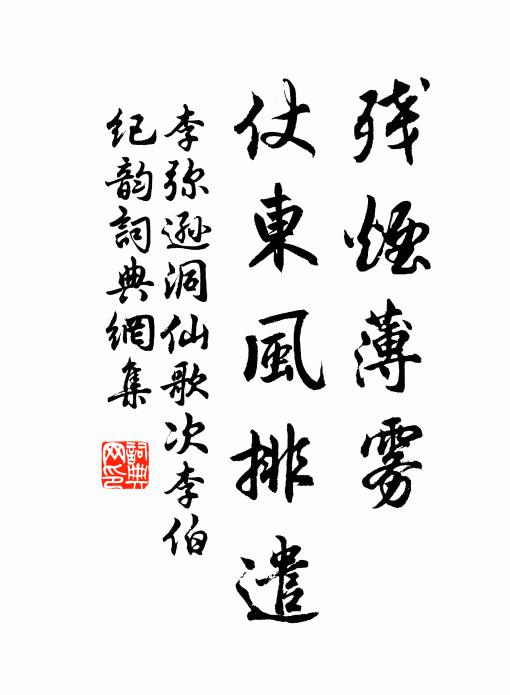 残煙薄雾
仗東風排遣
李弥遜洞仙歌次李伯
纪韵詞典網集
詞典网印